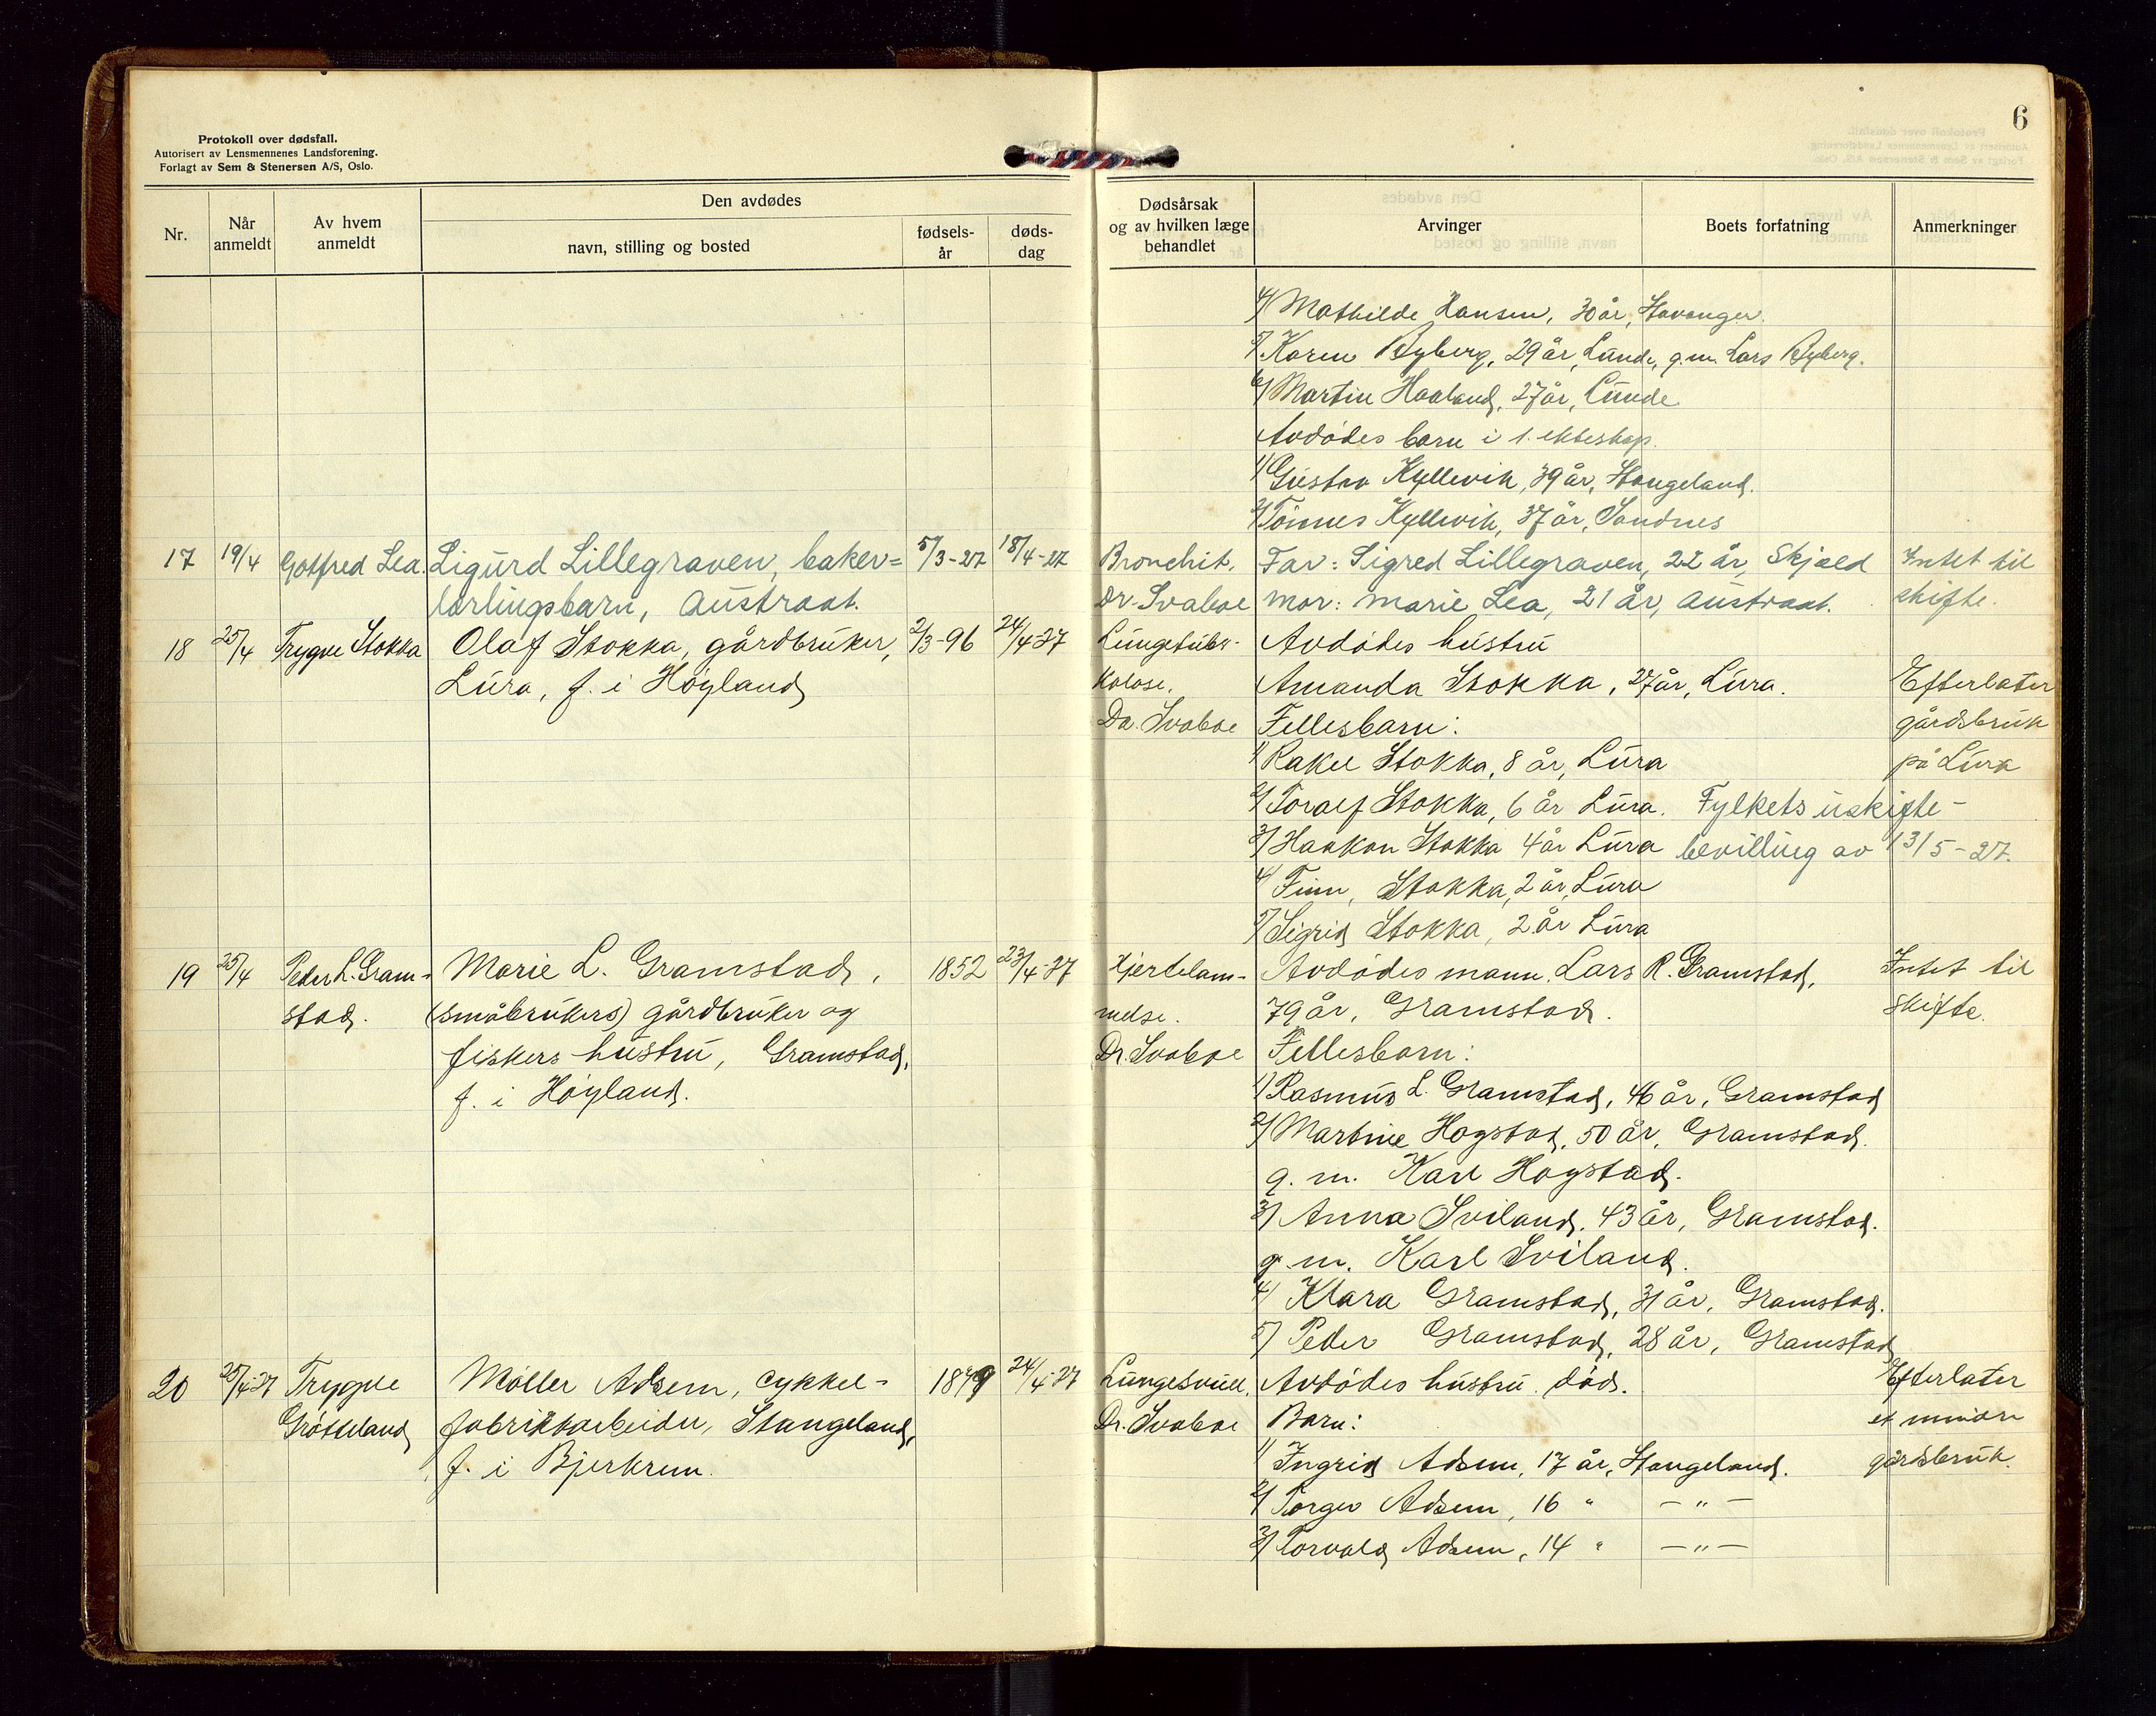 6
Protokoll over dødsfall.
Autorisert av Lensmennenes Landsforening.
Forlagt av Sem & Stenersen A/S, Oslo.
Nr.
Når anmeldt
Av hvem anmeldt
Den avdødes
navn, stilling og bosted
fødsels-år
døds-dag
Dødsårsak og av hvilken læge behandlet
Arvinger
Boets forfatning
Anmerkninger
4/ Mathilde Hansen, 30 år, Stavanger.
5/ Karen Ryberg, 29 år, Lunde, g.m. Lars Ryberg.
6/ Martin Haaland, 27 år, Lunde
Avdødes barn i 1. ekteskap.
1/ Gustav Kyllevik, 39 år, Stangeland.
2/ Tönnes Kyllevik, 37 år, Sandnes
17 19/4 Gotfred Lea. Sigurd Lillegraven, baker= 5/3-27 18/4-27 Bronchit. Far: Sigred Lillegraven, 22 år, Skjold Intet til
lærlingsbarn, Austraat. Dr. Svaboe mor: Marie Lea, 21 år, Austraat. skifte.
18 25/4 Trygve Stokka Olaf Stokka, gårdbruker, 2/3-96 24/4-27 Lungetuber- Avdødes hustru
Lura, f. i Høyland kolose. Amanda Stokka, 27 år, Lura. Efterlater
Dr. Svaboe Fellesbarn: gårdsbruk
1/ Rakel Stokka, 8 år, Lura på Lura
2/ Toralf Stokka, 6 år Lura. Fylkets uskifte-
3/ Haakon Stokka 4 år Lura bevilling av 13/5-27.
4/ Finn, Stokka, 2 år, Lura
5/ Sigrid Stokka, 2 år Lura
19 25/4 Peder L. Gram- Marie L. Gramstad, 1852 23/4-27 Hjertelam- Avdødes mann. Lars R. Gramstad, Intet til
stad. (småbrukers) gårdbruker og melse. 79 år, Gramstad. skifte.
fiskers hustru, Gramstad, Dr. Svaboe Fellesbarn:
f. i Høyland. 1/ Rasmus L. Gramstad, 46 år, Gramstad
2/ Martine Hogstad, 50 år, Gramstad.
g. m. Karl Hogstad.
3/ Anna Sviland, 43 år, Gramstad.
g. m. Karl Sviland.
4/ Klara Gramstad, 31 år, Gramstad.
5/ Peder Gramstad, 28 år, Gramstad
20 25/4-27 Trygve Møller Adsem, cykkel- 1879 24/4-27 Lungesvull. Avdødes hustru. død. Efterlater
Gröteland fabrikkarbeider, Stangeland, Dr. Svaboe Barn: et mindre
f. i Bjerkrem. 1/ Ingrid Adsem, 17 år, Stangeland. gårdsbruk.
2/ Torger Adsem, 16 " — " —
3/ Torvald Adsem, 14 " — " —